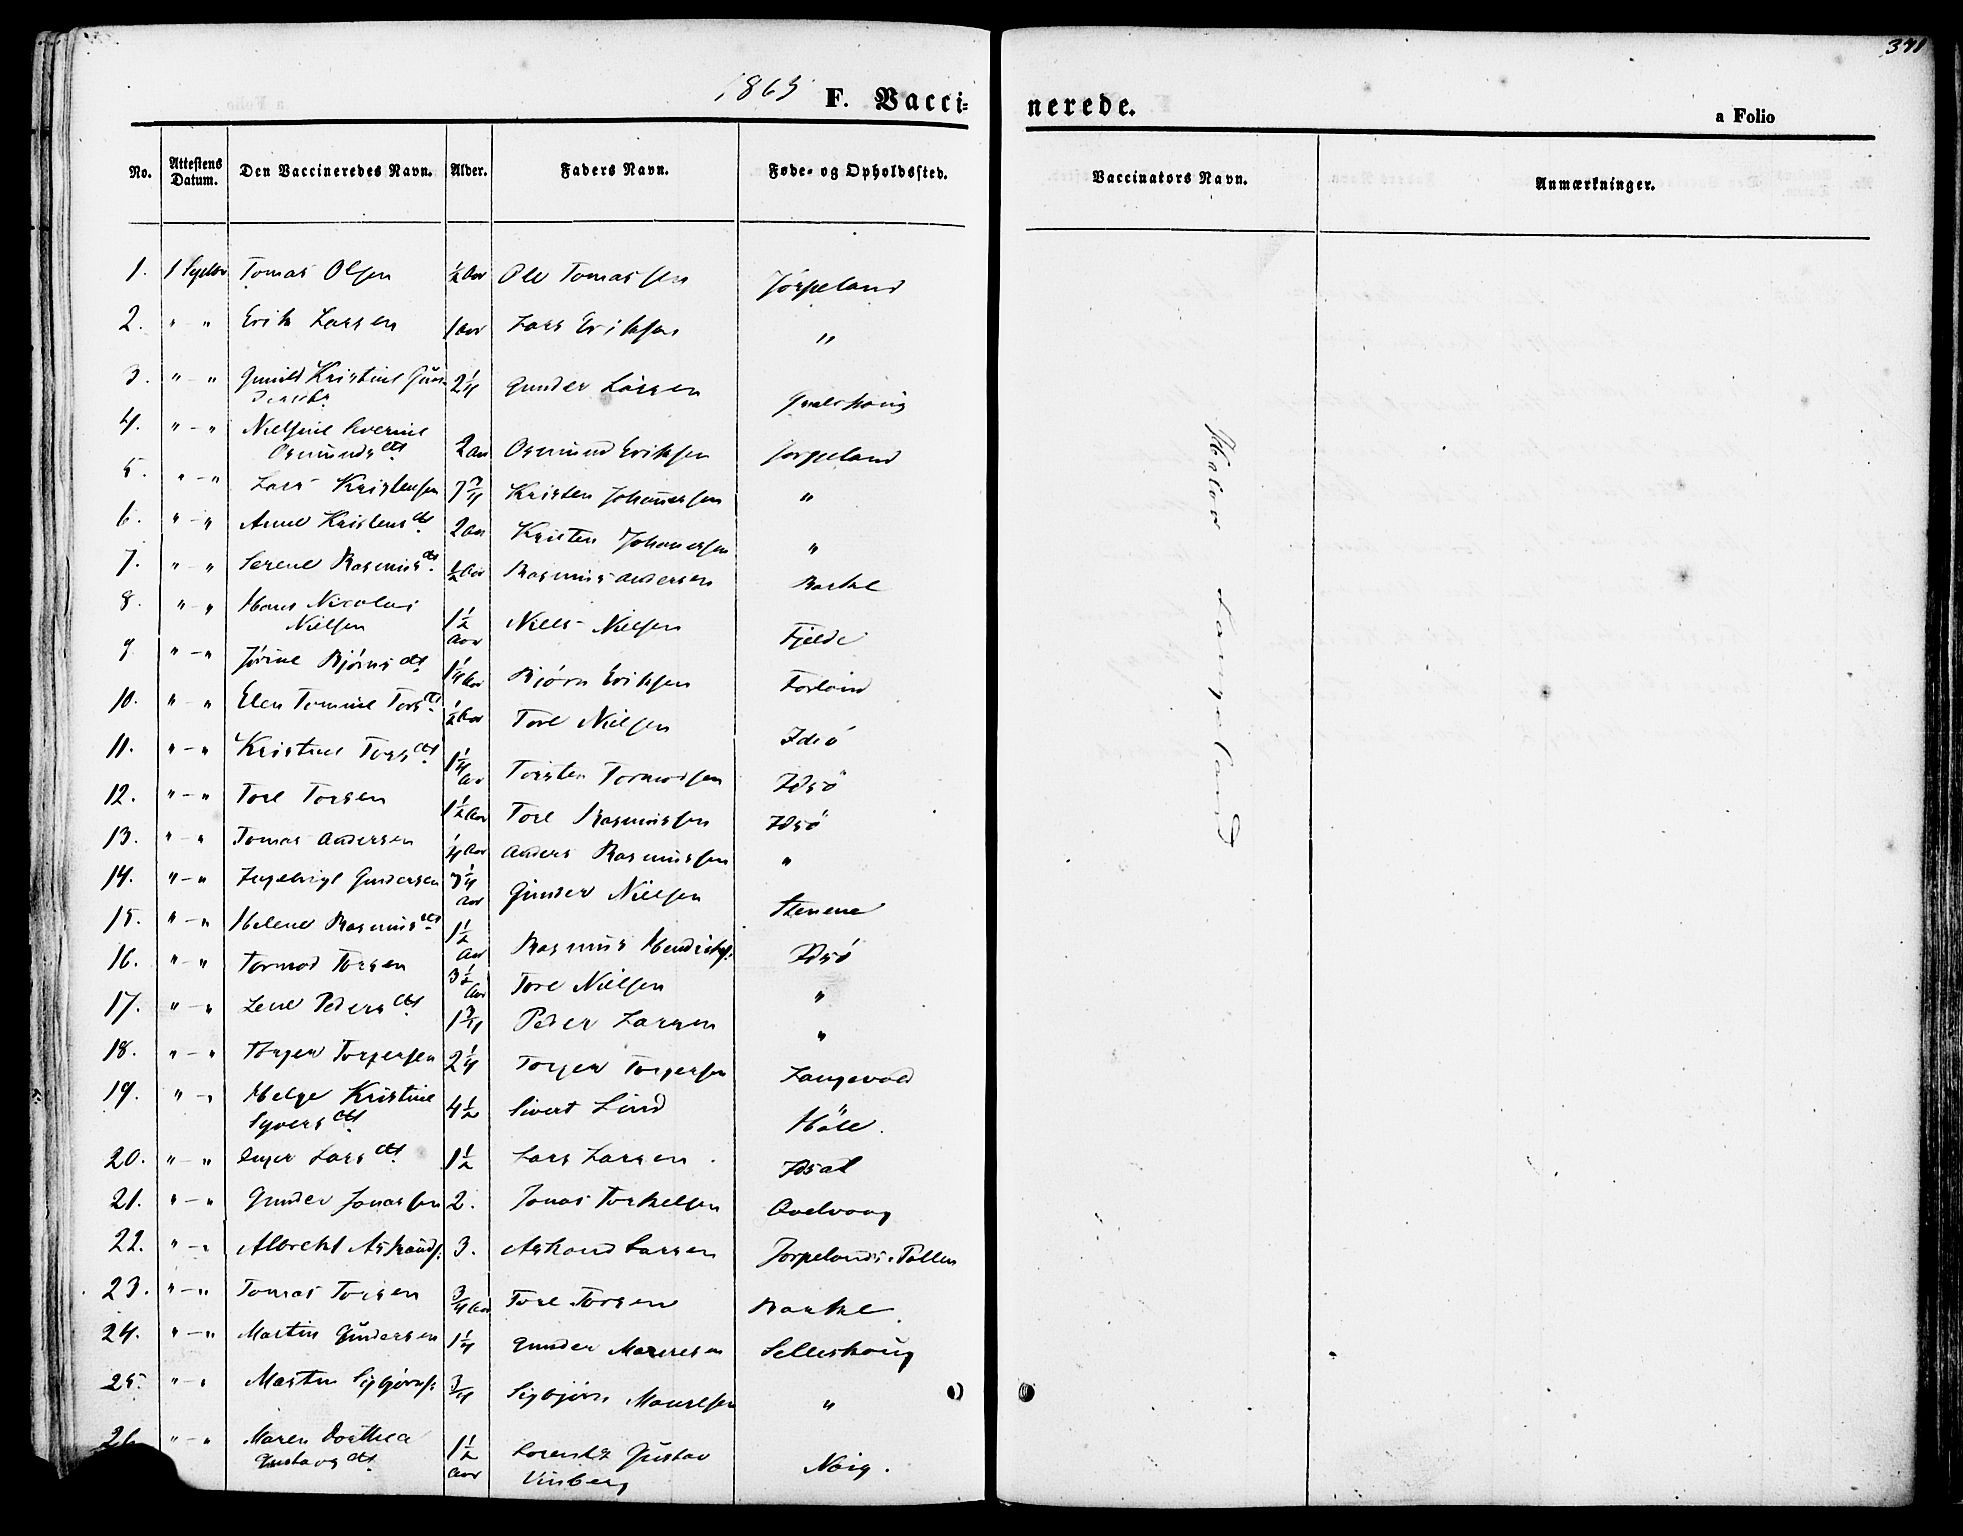 341
1865 F. Vacci= nerede. a Folio
No. Attestens Datum. Den Vaccineredes Navn. Alder. Faders Navn. Føde- og Opholdssted. Vaccinators Navn. Anmærkninger.
1. 1 Tomas Olsen ½ Aar Ole Tomassen Jörpeland
2. " – " Erik Larsen 1 Aar Lars Eriksen "
3. " – " Gunild Kristine 2¼ Gunder Larsen
4. " – " Nielsine Severine
Osmundsdtr 2 Aar Osmund Eriksen Jørpeland
5. " – " Lars Kristensen 7¾ Kristen Johannessen "
6. " – " Anne Kristensdtr 2 Aar Kristen Johannessen "
7. " – " Serene Rasmusdtr ½ Aar Rasmus Andersen Barkel
8. " – " Hans Nicolai
Nielsen 1½ Aar Niels Nielsen Fjelde
9. " – " Jørine Bjørnsdtr 1¼ Aar Bjørn Eriksen Forland
10. " – " Elen Tomine Torsdtr ½ Aar Tore Nielsen Idsö
11. " – " Kristine Torsdtr 1¼ Aar Torsten Tormodsen Idsö
12. " – " Tore Torsen 1½ Aar Tore Rasmussen Idsö
13. " – " Tomas Andersen ¼ Aar Anders Rasmussen "
14. " – " Ingebrigt Gundersen Aar Gunder Nielsen Stenene
15. " – " Helene Rasmusdtr 1½ Aar Rasmus Hendriks. Idsö
16. " – " Tormod Torsen 3½ Aar Tore Nielsen "
17. " – " Lene Pedersdtr 1¾ Peder Larsen "
18. " – " Torger Torgersen 2¼ Torger Torgersen Langevold
19. " – " Helge Kristine
Syversdtr 4½ Sivert Lind Höle.
20. " – " Inger Larsdtr 1½ Lars Larsen. Idsal
21. " – " Gunder Jonassen 2. Jonas Torkelsen
22. " – " Albrekt 3. Larsen Jorpelands-Pollen
23. " – " Tomas Torsen ¾ Aar Tore Torsen Barkel.
24. " – " Martin Gundersen 1¼ Gunder Selleshoug
25. " – " Martin Sigbjørns: ¾ Sigbjørn "
26 " – " Maren Dorthea
Gustavsdtr 1½ Aar Lorentz Gustav
Vinberg Nåig.
Halvor Langeland